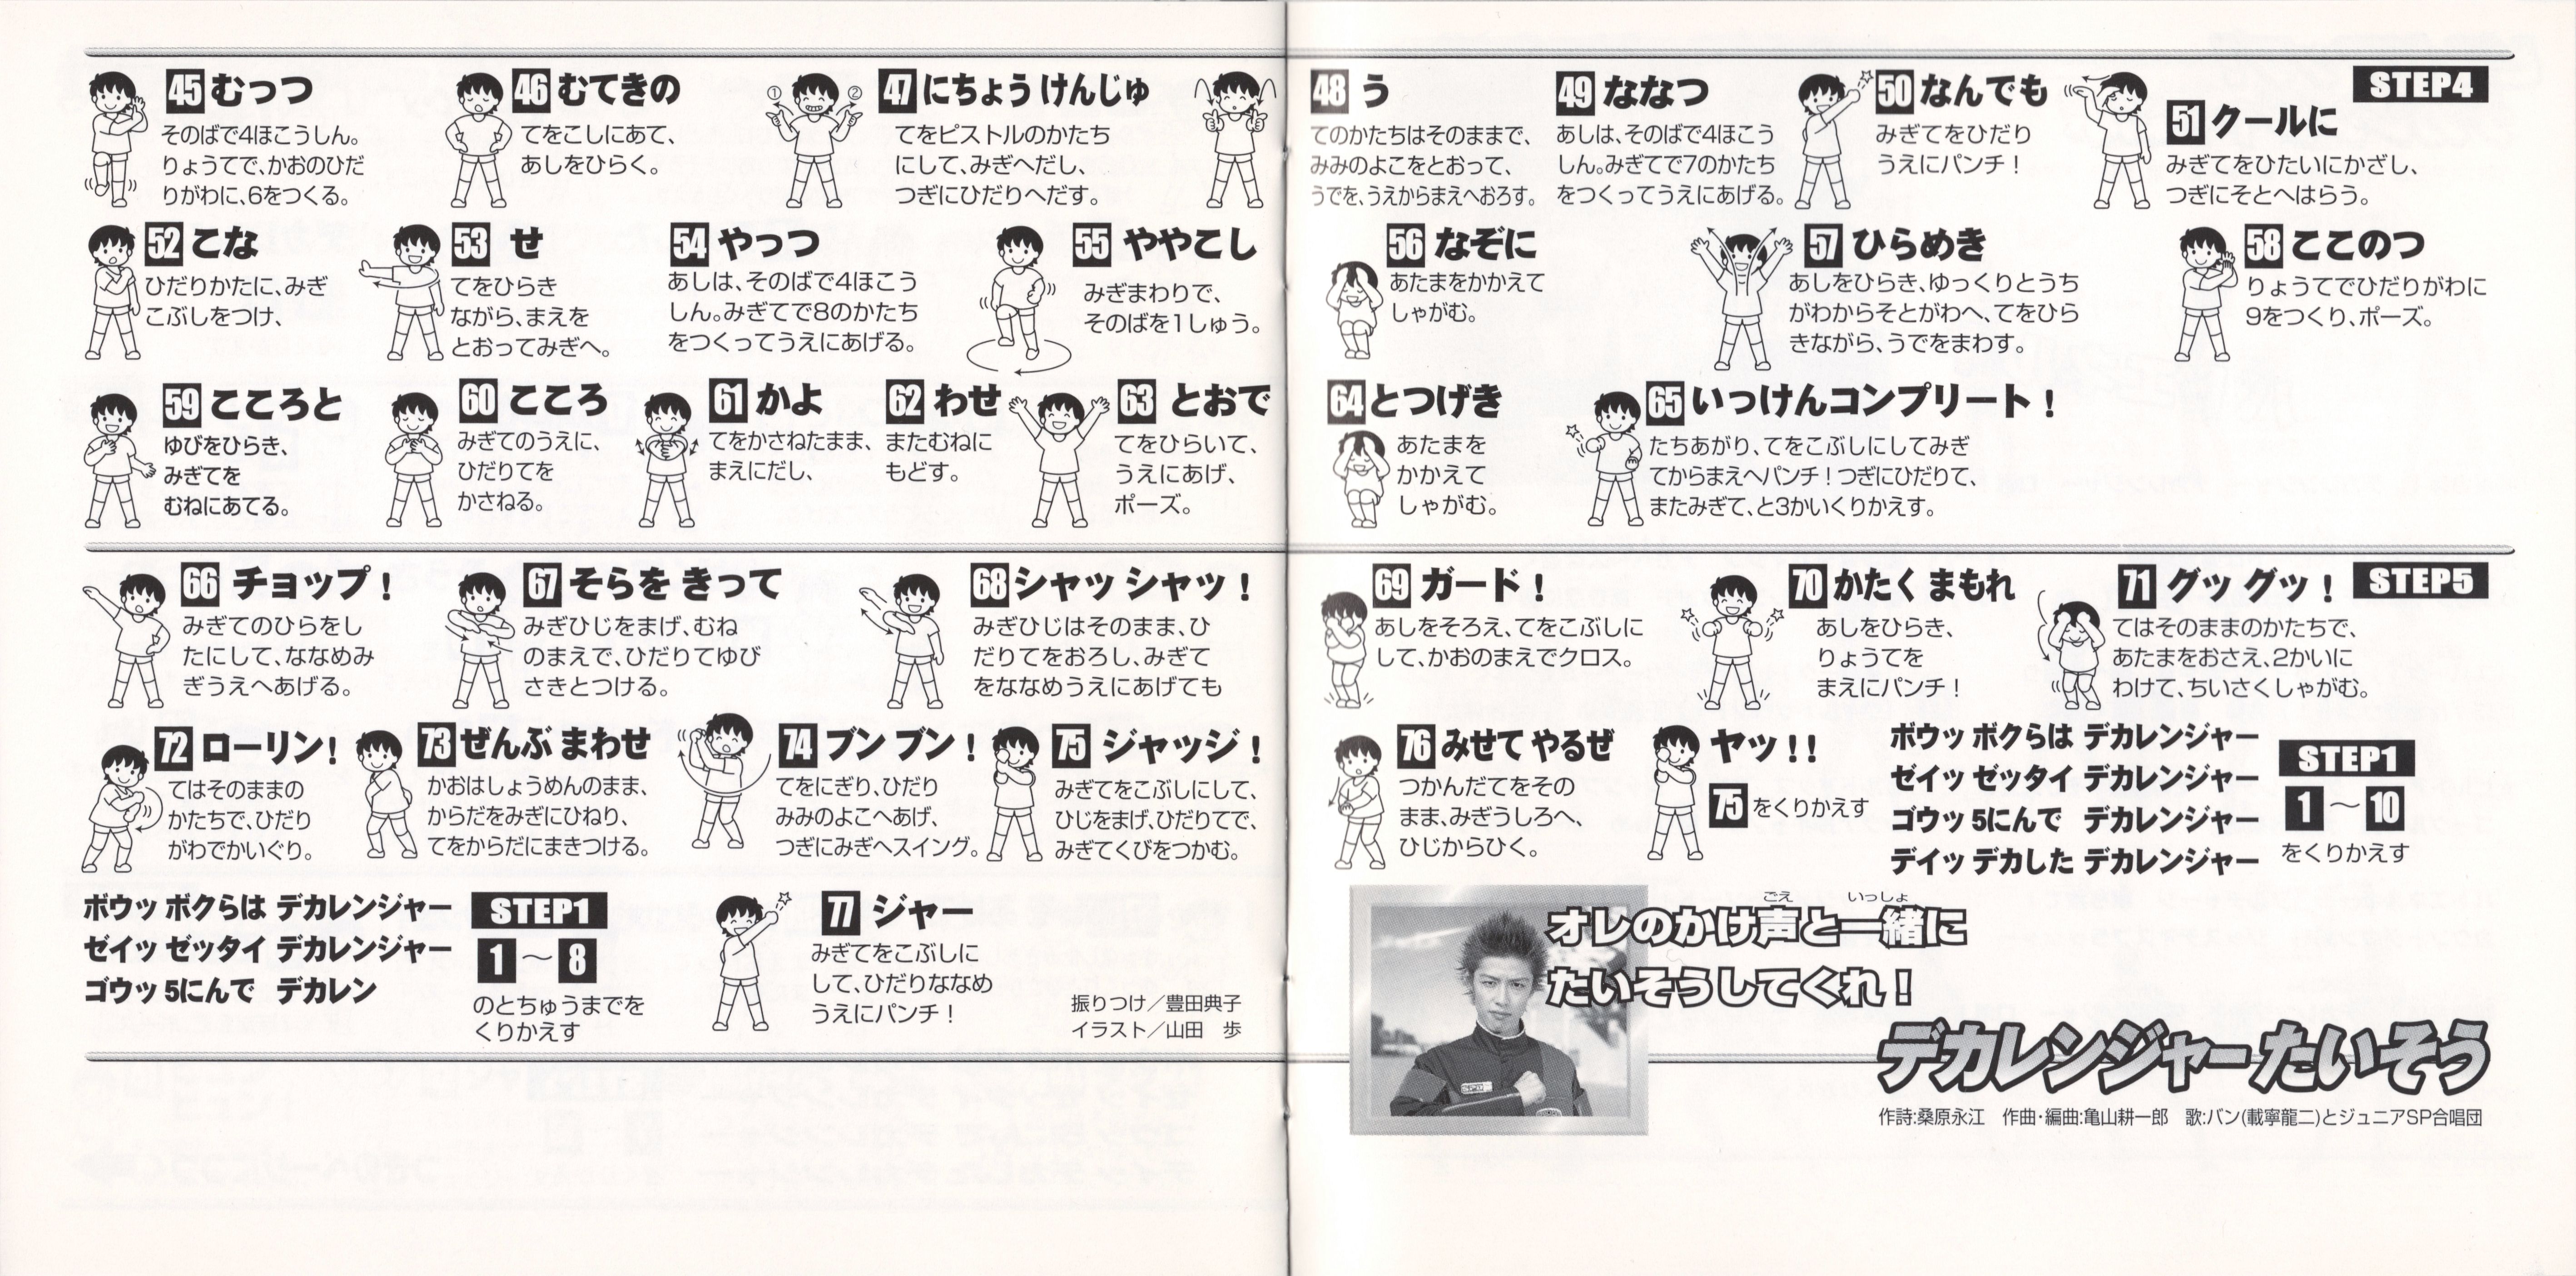 STEP4
45 むっつ
そのばで4ほこうしん。
りょうてで、かおのひだ
りがわに、6をつくる。
46 むてきの
てをこしにあて、
あしをひらく。
① ②
47 にちょう けんじゅ
てをピストルのかたち
にして、みぎへだし、
つぎにひだりへだす。
48 う
てのかたちはそのままで、
みみのよこをとおって、
うでを、うえからまえへおろす。
49 ななつ
あしは、そのばで4ほこう
しん。みぎてで7のかたち
をつくってうえにあげる。
50 なんでも
みぎてをひだり
うえにパンチ！
51 クールに
みぎてをひたいにかざし、
つぎにそとへはらう。
52 こな
ひだりかたに、みぎ
こぶしをつけ、
53 せ
てをひらき
ながら、まえを
とおってみぎへ。
54 やっつ
あしは、そのばで4ほこう
しん。みぎてで8のかたち
をつくってうえにあげる。
55 ややこし
みぎまわりで、
そのばを1しゅう。
56 なぞに
あたまをかかえて
しゃがむ。
57 ひらめき
あしをひらき、ゆっくりとうち
がわからそとがわへ、てをひら
きながら、うでをまわす。
58 ここのつ
りょうてでひだりがわに
9をつくり、ポーズ。
59 こころと
ゆびをひらき、
みぎてを
むねにあてる。
60 こころ
みぎてのうえに、
ひだりてを
かさねる。
61 かよ
てをかさねたまま、
まえにだし、
62 わせ
またむねに
もどす。
63 とおで
てをひらいて、
うえにあげ、
ポーズ。
64 とつげき
あたまを
かかえて
しゃがむ。
65 いっけんコンプリート！
たちあがり、てをこぶしにしてみぎ
てからまえへパンチ！つぎにひだりて、
またみぎて、と3かいくりかえす。
STEP5
66 チョップ！
みぎてのひらをし
たにして、ななめみ
ぎうえへあげる。
67 そらを きって
みぎひじをまげ、むね
のまえで、ひだりてゆび
さきとつける。
68 シャッ シャッ！
みぎひじはそのまま、ひ
だりてをおろし、みぎて
をななめうえにあげても
69 ガード！
あしをそろえ、てをこぶしに
して、かおのまえでクロス。
70 かたく まもれ
あしをひらき、
りょうてを
まえにパンチ！
71 グッ グッ！
てはそのままのかたちで、
あたまをおさえ、2かいに
わけて、ちいさくしゃがむ。
72 ローリン！
てはそのままの
かたちで、ひだり
がわでかいぐり。
73 ぜんぶ まわせ
かおはしょうめんのまま、
からだをみぎにひねり、
てをからだにまきつける。
74 ブン ブン！
てをにぎり、ひだり
みみのよこへあげ、
つぎにみぎへスイング。
75 ジャッジ！
みぎてをこぶしにして、
ひじをまげ、ひだりてで、
みぎてくびをつかむ。
76 みせて やるぜ
つかんだてをその
まま、みぎうしろへ、
ひじからひく。
ヤッ！！
75をくりかえす
ボウッ ボクらは デカレンジャー
ゼイッ ゼッタイ デカレンジャー
ゴウッ 5にんで デカレンジャー
デイッ デカした デカレンジャー
STEP1
1～10
をくりかえす
ボウッ ボクらは デカレンジャー
ゼイッ ゼッタイ デカレンジャー
ゴウッ 5にんで デカレン
STEP1
1～8
のとちゅうまでを
くりかえす
77 ジャー
みぎてをこぶしに
して、ひだりななめ
うえにパンチ！
振りつけ／豊田典子
イラスト／山田 歩
ごえ いっしょ
オレのかけ声と一緒に
たいそうしてくれ！
デカレンジャーたいそう
作詩:桑原永江 作曲・編曲:亀山耕一郎 歌:バン(載寧龍二)とジュニアSP合唱団